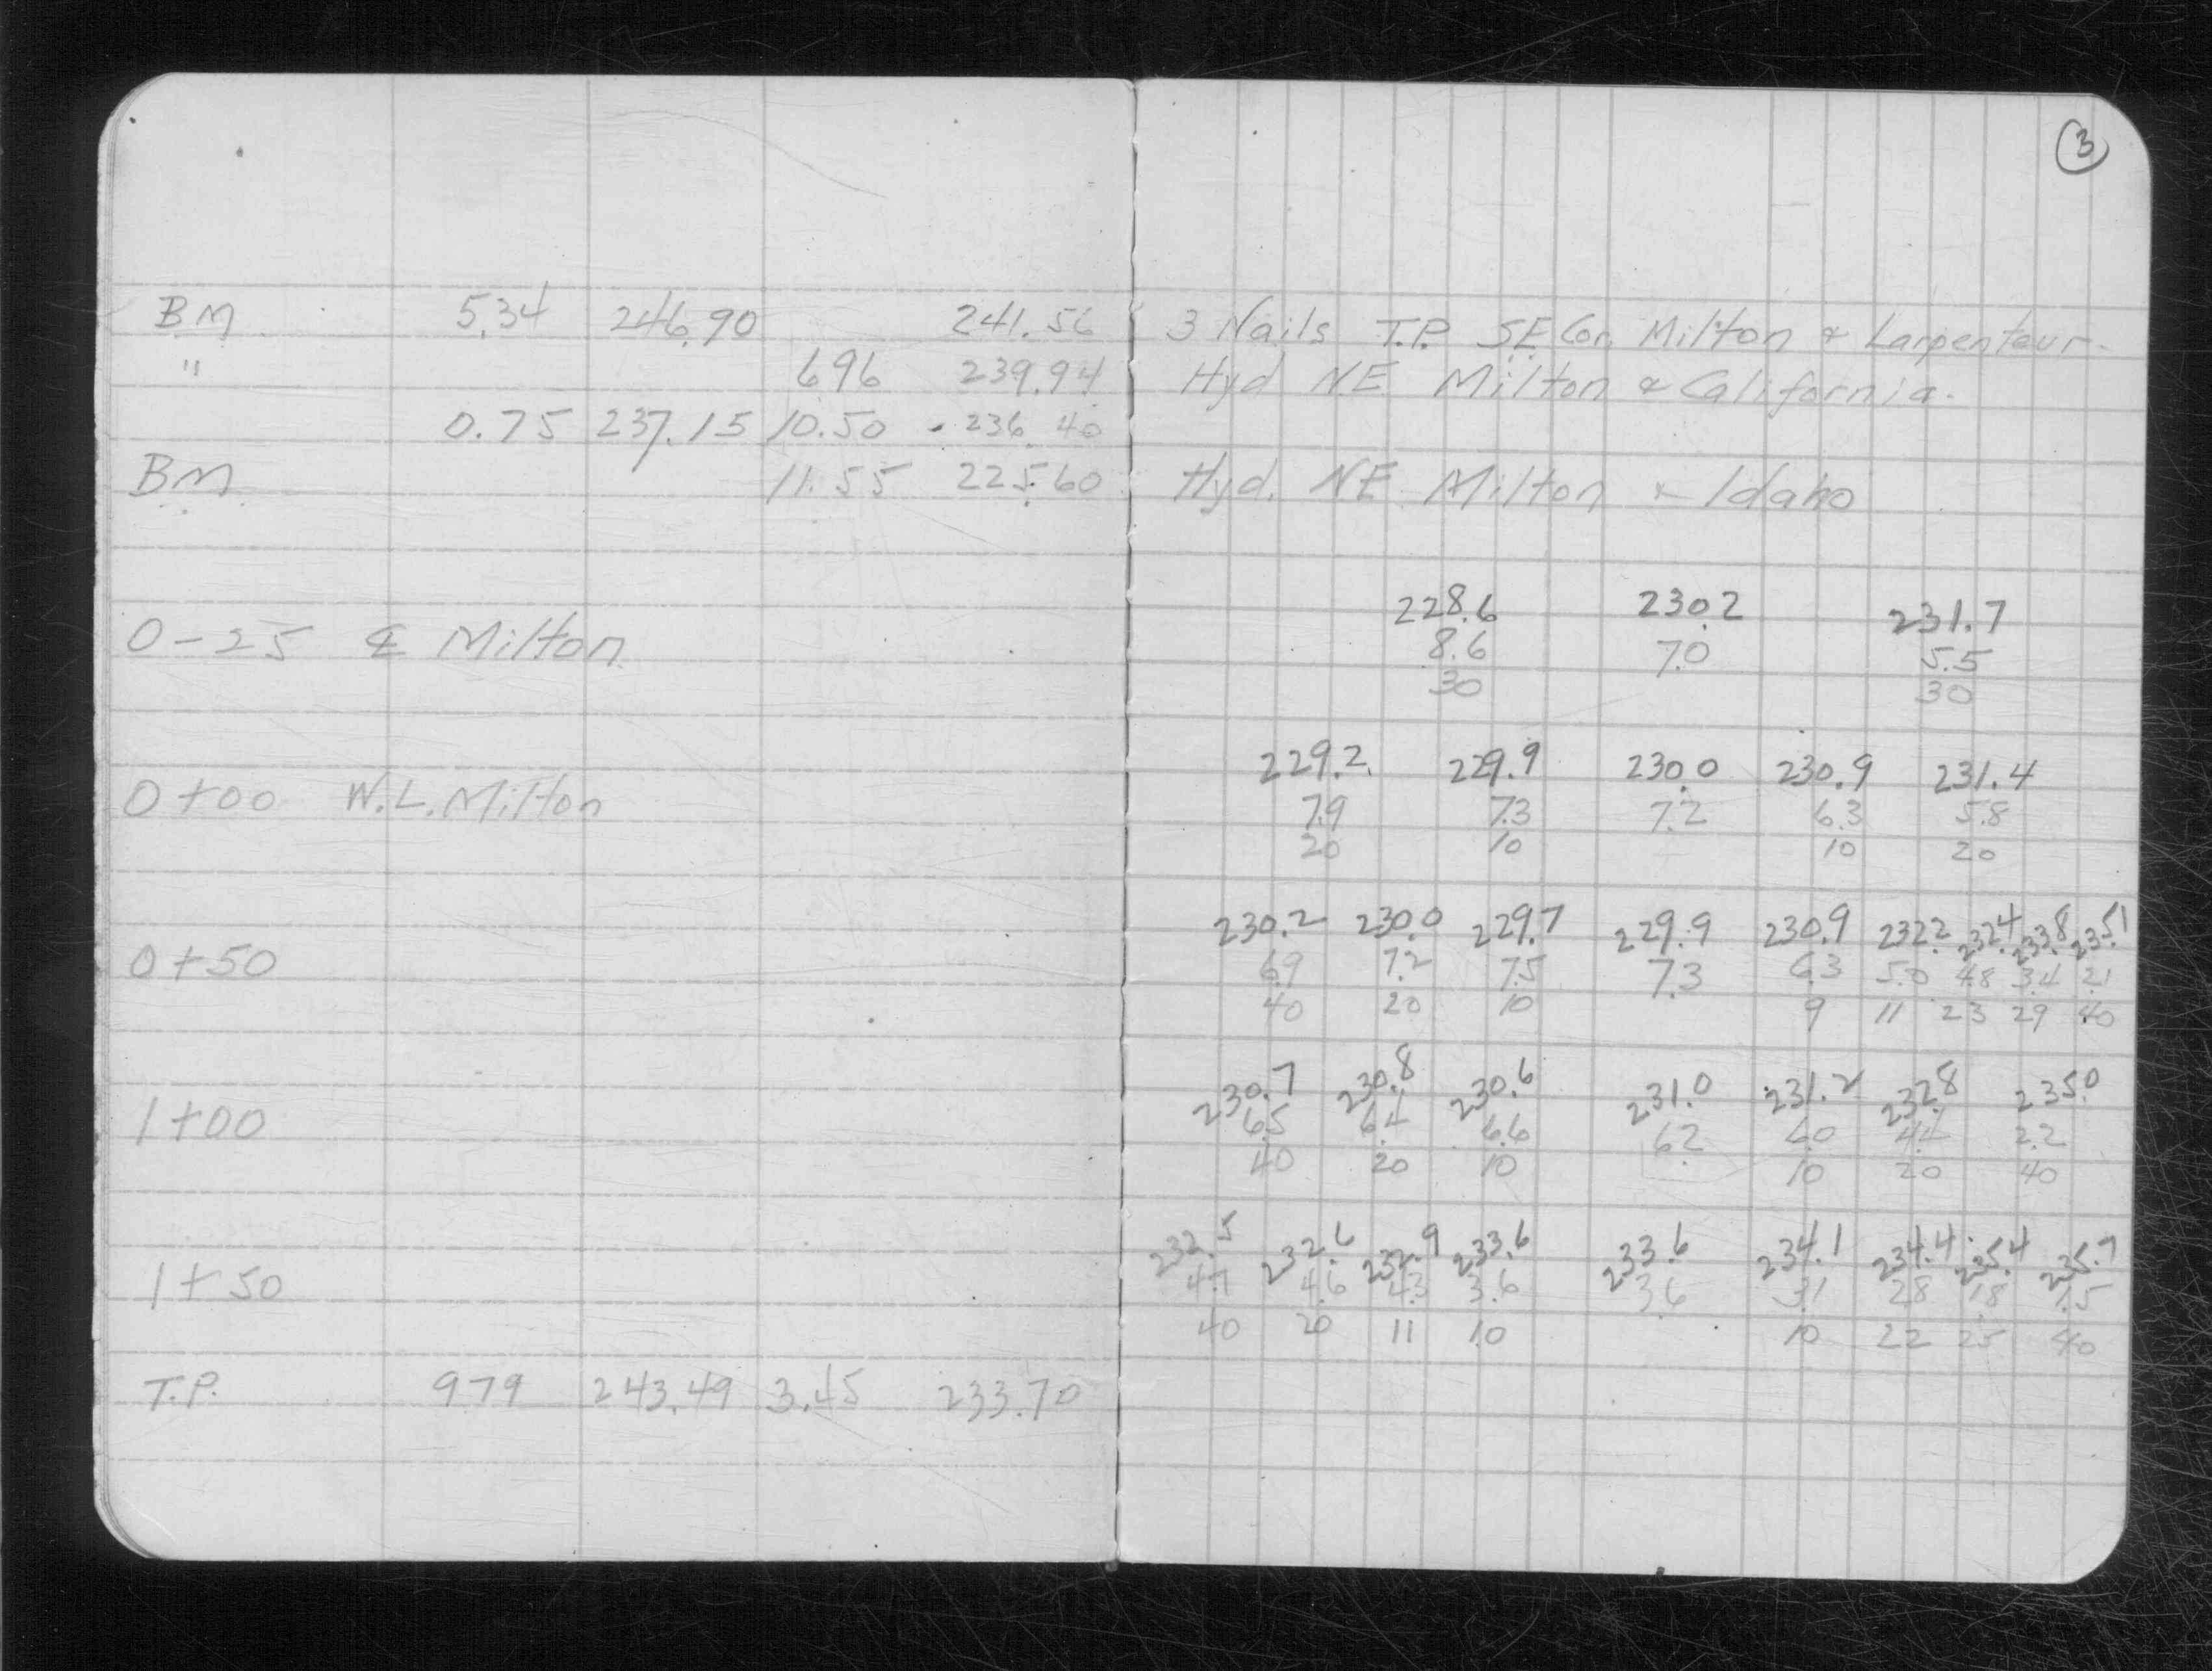 3
BM 5.34 246.90 241.56 3 Nails T.P. SE Cor. Milton & Larpenteur.
" 6.96 239.94 Hyd NE Milton & California.
0.75 237.15 10.50 236.40
BM 11.55 225.60 Hyd. NE Milton & Idaho
228.6 230.2 231.7
0-25 ℄ Milton 8.6 7.0 5.5
30 30
229.2 229.9 230.0 230.9 231.4
0+00 W.L. Milton 7.9 7.3 7.2 6.3 5.8
20 10 10 20
230.2 230.0 229.7 229.9 230.9 232.2 232.4 233.8 235.1
0+50 6.9 7.2 7.5 7.3 6.3 5.0 4.8 3.4 2.1
40 20 10 9 11 23 29 40
230.7 230.8 230.6 231.0 231.2 232.8 235.0
1+00 6.5 6.4 6.6 6.2 6.0 4.4 2.2
40 20 10 10 20 40
232.5 232.6 232.9 233.6 233.6 234.1 234.4 235.4 235.7
1+50 4.7 4.6 4.3 3.6 3.6 3.1 2.8 1.8 1.5
40 20 11 10 10 22 25 40
T.P. 9.79 243.49 3.45 233.70